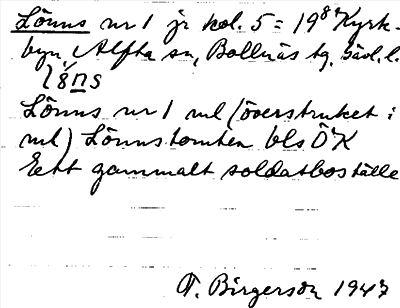 Lönns nr 1 jr kol. 5 = 19 8⁴ Kyrk-
byn, Alfta sn, Bollnäs tg, Gävl. l.
Lönns nr 1 ml (överstruket i
ml) Lönnstomten bls ÖK
Ett gammalt soldatboställe
T. Birgerson 1947